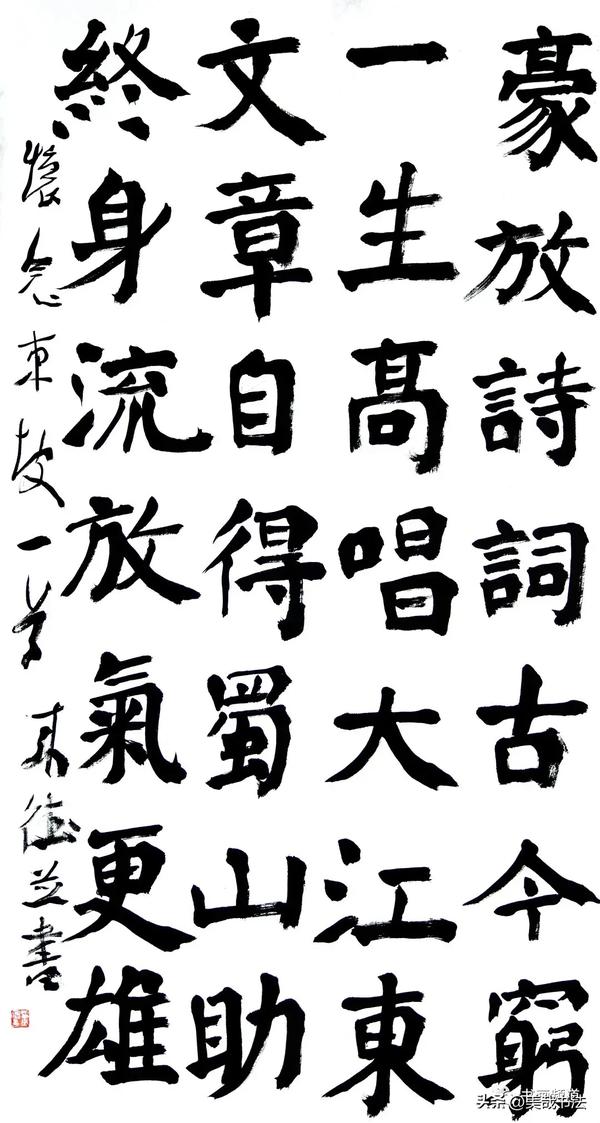 豪放詩詞古今窮
一生髙唱大江東
文章自得蜀山助
終身流放氣更雄
懷念東坡一首 來德並書
头条@美哉书法